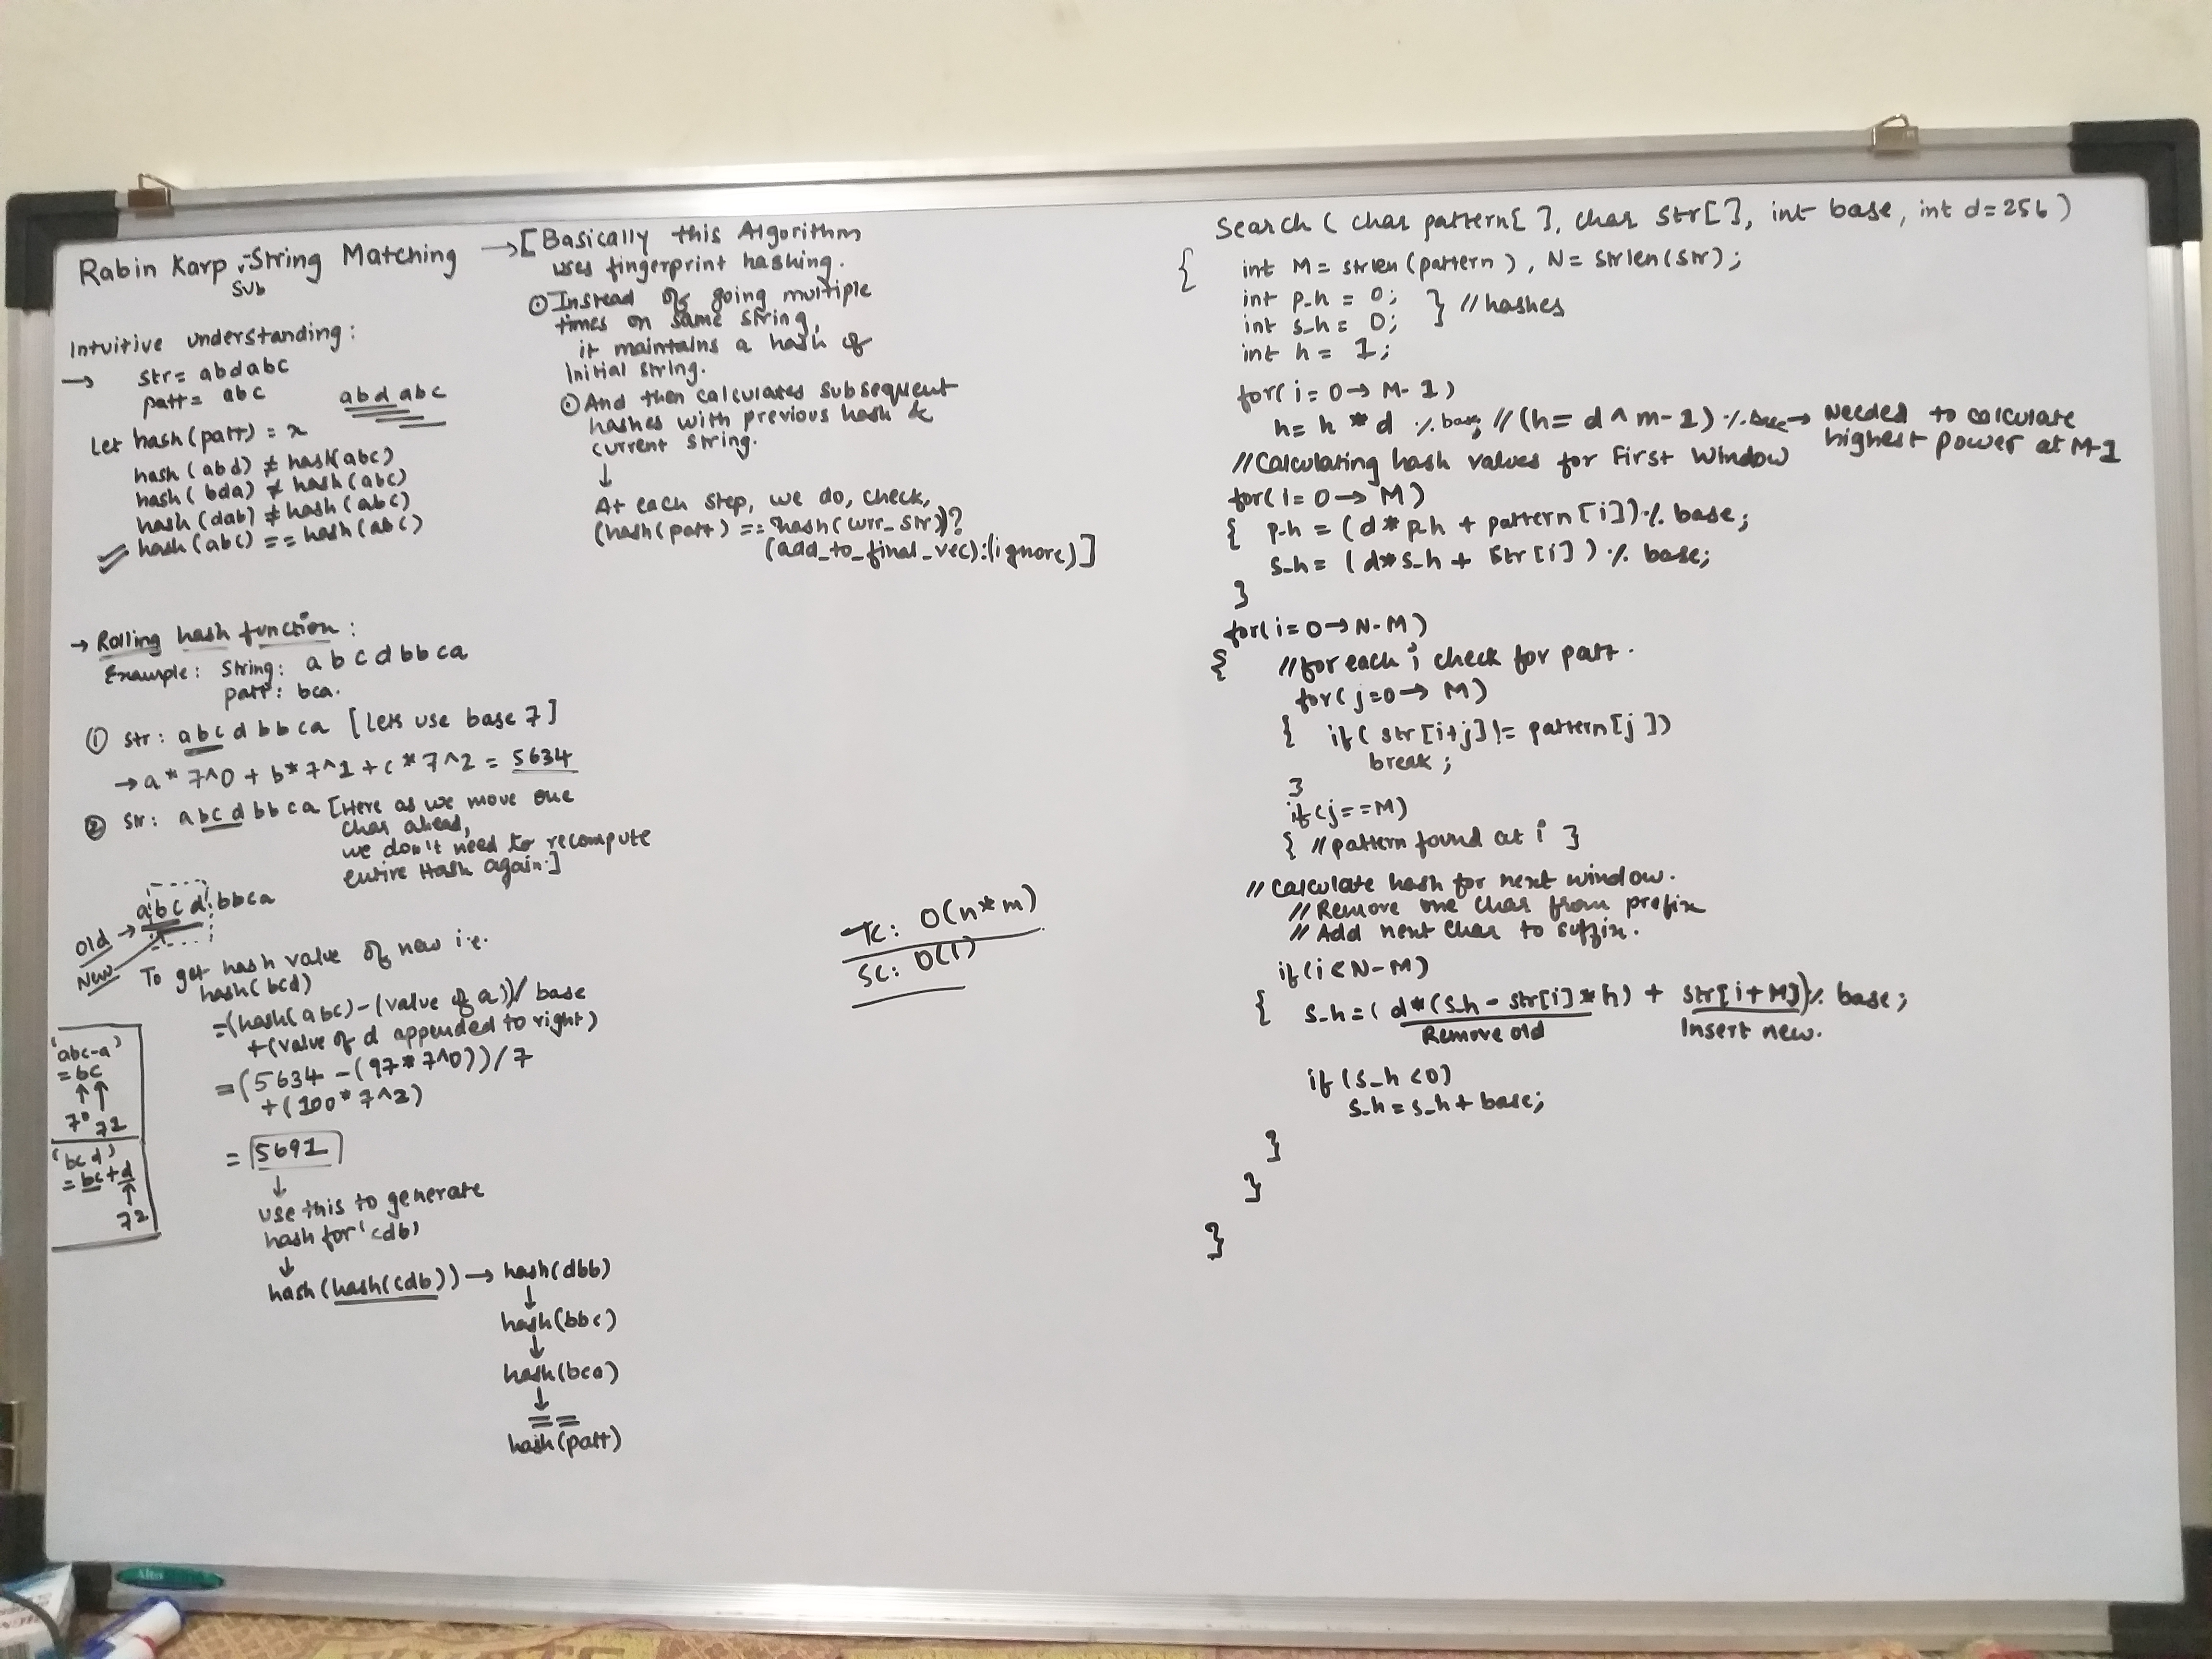 Rabin Karp :-String Matching
Sub
→ [Basically this Algorithm
uses fingerprint hashing.
⊙ Instead of going multiple
times on same string,
it maintains a hash of
initial string.
⊙ And then calculates subsequent
hashes with previous hash &
current string.
↓
At each step, we do, check,
(hash(patt) == hash(curr_str))?
(add_to_final_vec):(ignore)]
Intuitive understanding:
→ str= abdabc
patt= abc
abdabc
Let hash(patt) = x
hash(abd) ≠ hash(abc)
hash(bda) ≠ hash(abc)
hash(dab) ≠ hash(abc)
hash(abc) == hash(abc)
→ Rolling hash function:
Example: String: abcdbbca
patt: bca.
① str: abcdbbca [Lets use base 7]
→ a*7^0 + b*7^1 + c*7^2 = 5634
② str: abcdbbca [Here as we move one
char ahead,
we don't need to recompute
entire Hash again.]
abcdbbca
Old →
New
To get hash value of new i.e.
hash(bcd)
=(hash(abc)-(value of a))/base
+(value of d appended to right)
=(5634-(97*7^0))/7
+(100*7^2)
= 5691
↓
use this to generate
hash for 'cdb'
↓
hash(hash(cdb)) → hash(dbb)
↓
hash(bbc)
↓
hash(bca)
↓
==
hash(patt)
'abc-a'
=bc
↑↑
7^0 7^1
'bcd'
=bc+d
↑
7^2
TC: O(n*m)
SC: O(1)
Search (char pattern[ ], char str[ ], int base, int d=256)
{
int M= strlen(pattern), N= strlen(str);
int p_h = 0;
int s_h= 0; } //hashes
int h = 1;
for(i=0→M-1)
h= h*d % base; //(h= d^m-1)% base → Needed to calculate
highest power at M-1
//Calculating hash values for First Window
for(i=0→M)
{ p_h = (d*p_h + pattern[i])% base;
s_h= (d*s_h + str[i])% base;
}
for(i=0→N-M)
{ //for each i check for patt.
for(j=0→M)
{ if(str[i+j]!= pattern[j])
break;
}
if(j==M)
{ //pattern found at i }
// Calculate hash for next window.
// Remove one char from prefix
// Add next char to suffix.
if(i<N-M)
{ s_h=(d*(s_h-str[i]*h) + str[i+M])% base;
Remove old Insert new.
if (s_h<0)
s_h=s_h+base;
}
}
}
Alto